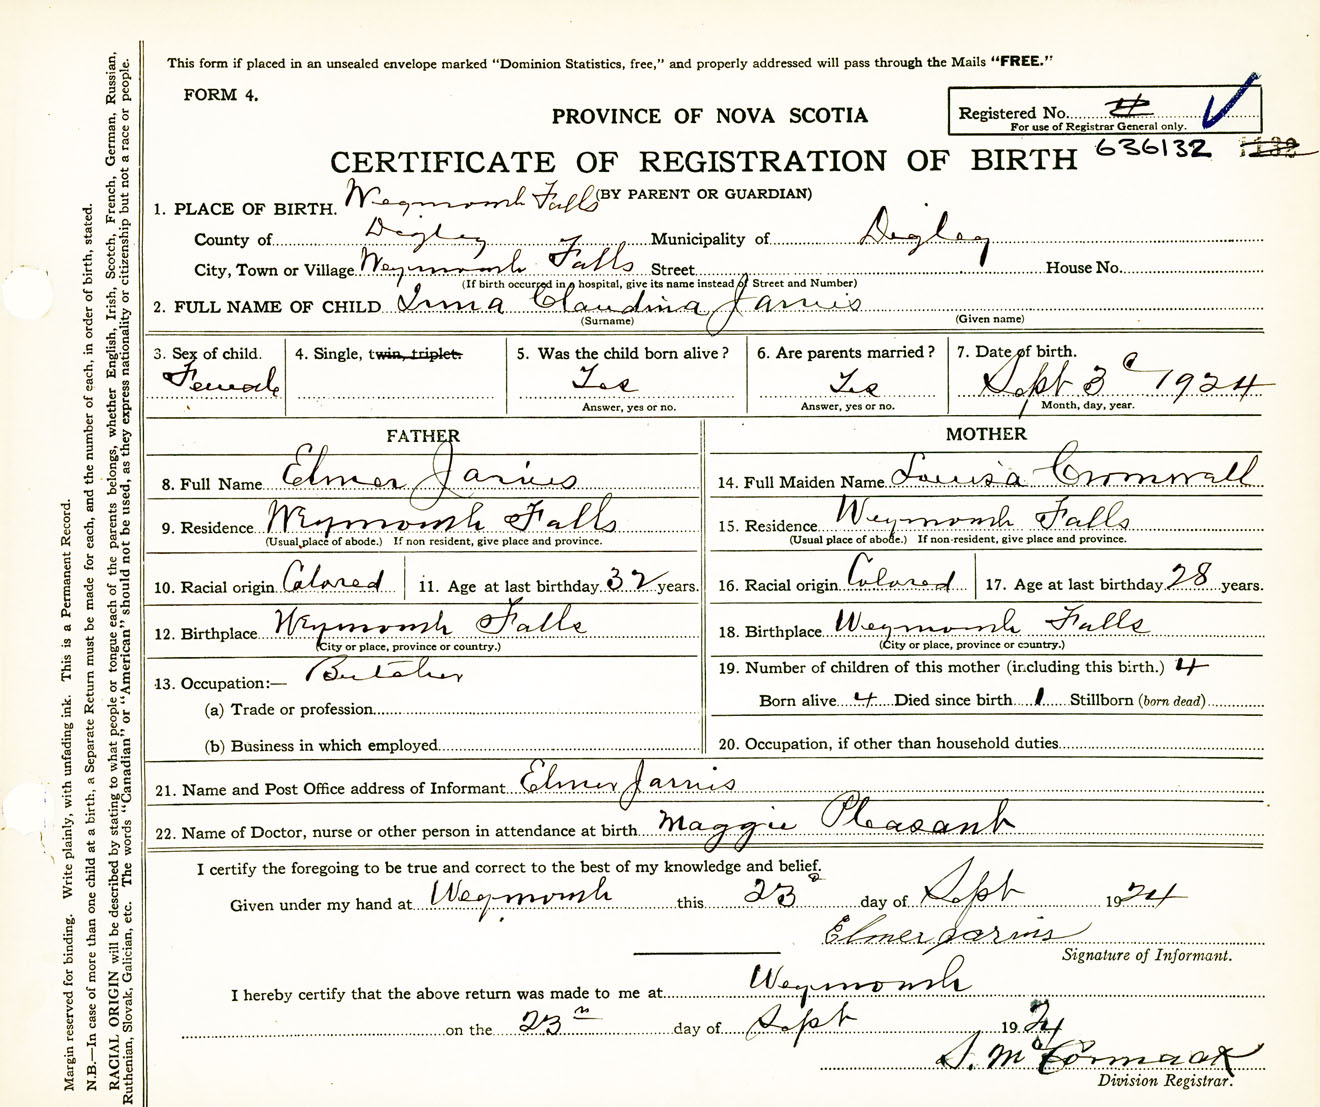 This form if placed in an unsealed envelope marked “Dominion Statistics, free,” and properly addressed will pass through the Mails “FREE.”
FORM 4.
PROVINCE OF NOVA SCOTIA
Registered No. 4
For use of Registrar General only.
CERTIFICATE OF REGISTRATION OF BIRTH 636132
(BY PARENT OR GUARDIAN)
1. PLACE OF BIRTH. Weymouth Falls
County of Digby Municipality of Digby
City, Town or Village Weymouth Falls Street House No.
(If birth occurred in a hospital, give its name instead of Street and Number)
2. FULL NAME OF CHILD Irma Claudina Jarvis
(Surname) (Given name)
3. Sex of child. 4. Single, twin, triplet. 5. Was the child born alive? 6. Are parents married? 7. Date of birth.
Female Yes Yes Sept 3 1924
Answer, yes or no. Answer, yes or no. Month, day, year.
FATHER MOTHER
8. Full Name Elmer Jarvis 14. Full Maiden Name Louisa Cromwell
9. Residence Weymouth Falls 15. Residence Weymouth Falls
(Usual place of abode.) If non resident, give place and province. (Usual place of abode.) If non-resident, give place and province.
10. Racial origin Colored 11. Age at last birthday 32 years. 16. Racial origin Colored 17. Age at last birthday 28 years.
12. Birthplace Weymouth Falls 18. Birthplace Weymouth Falls
(City or place, province or country.) (City or place, province or country.)
13. Occupation:— Butcher 19. Number of children of this mother (including this birth.) 4
(a) Trade or profession Born alive 4 Died since birth 1 Stillborn (born dead)
(b) Business in which employed 20. Occupation, if other than household duties
21. Name and Post Office address of Informant Elmer Jarvis
22. Name of Doctor, nurse or other person in attendance at birth Maggie Pleasant
I certify the foregoing to be true and correct to the best of my knowledge and belief.
Given under my hand at Weymouth this 23 day of Sept 1924
Elmer Jarvis
Signature of Informant.
I hereby certify that the above return was made to me at Weymouth
on the 23 day of Sept 1924
S. McCormack
Division Registrar.
Margin reserved for binding. Write plainly, with unfading ink. This is a Permanent Record.
N.B.—In case of more than one child at a birth, a Separate Return must be made for each, and the number of each, in order of birth, stated.
RACIAL ORIGIN will be described by stating to what people or tongue each of the parents belongs, whether English, Irish, Scotch, French, German, Russian,
Ruthenian, Slovak, Galician, etc. The words “Canadian” or “American” should not be used, as they express nationality or citizenship but not a race or people.